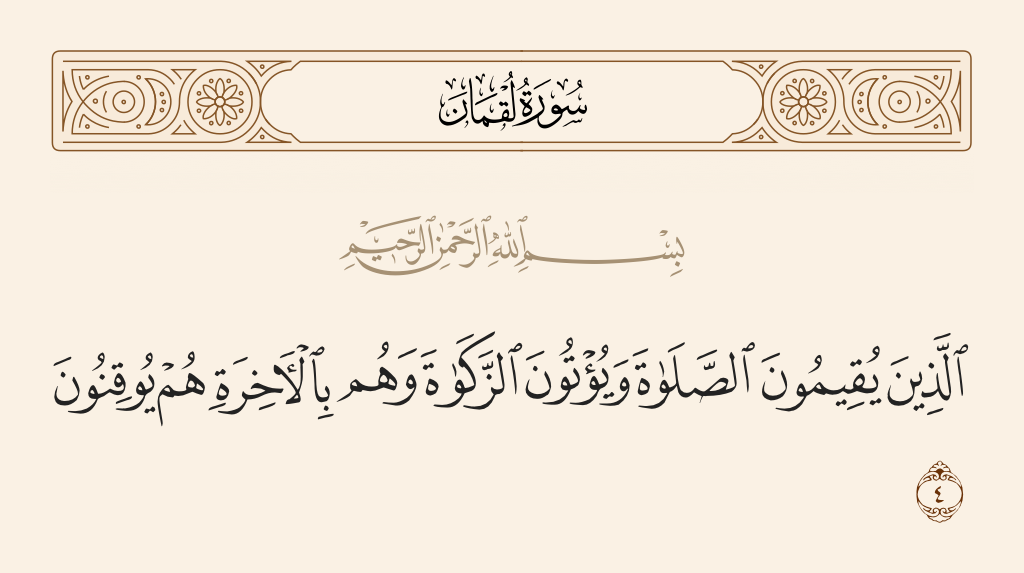 سُورَةُ لُقْمَان
بِسْمِ ٱللَّهِ ٱلرَّحْمَٰنِ ٱلرَّحِيمِ
ٱلَّذِينَ يُقِيمُونَ ٱلصَّلَوٰةَ وَيُؤْتُونَ ٱلزَّكَوٰةَ وَهُم بِٱلْـَٔاخِرَةِ هُمْ يُوقِنُونَ
٤